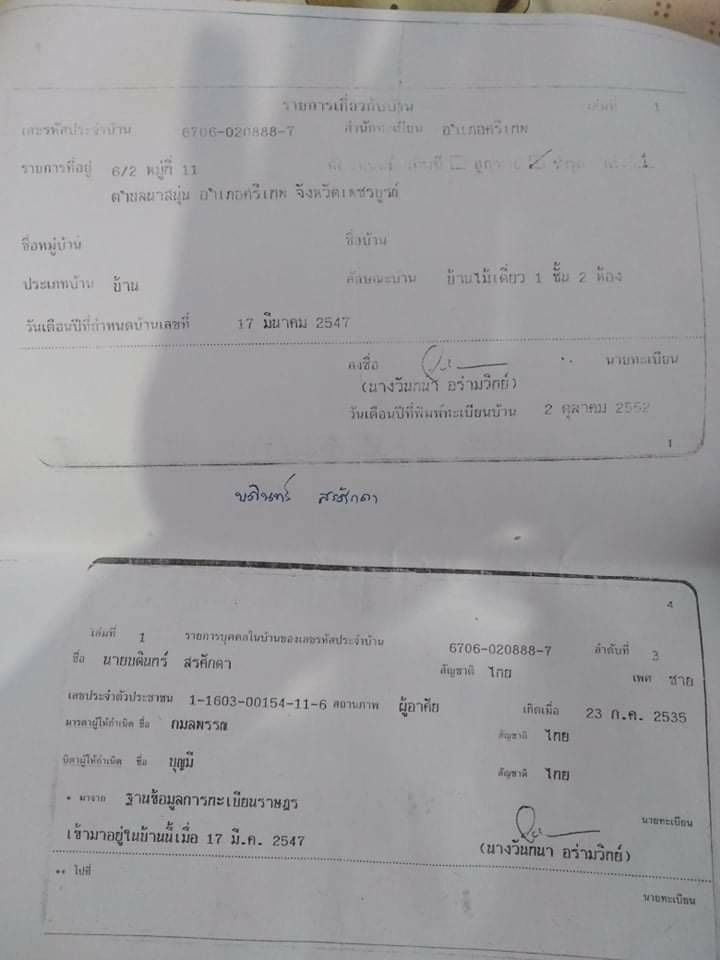 รายการเกี่ยวกับบ้าน เล่มที่ 1
เลขรหัสประจำบ้าน 6706-020888-7 สำนักทะเบียน อำเภอศรีเทพ
รายการที่อยู่ 6/2 หมู่ที่ 11
ตำบลนาสนุ่น อำเภอศรีเทพ จังหวัดเพชรบูรณ์
ชื่อหมู่บ้าน ชื่อบ้าน
ประเภทบ้าน บ้าน ลักษณะบ้าน บ้านไม้เดี่ยว 1 ชั้น 2 ห้อง
วันเดือนปีที่กำหนดบ้านเลขที่ 17 มีนาคม 2547
ลงชื่อ นายทะเบียน
(นางวันทนา อร่ามวิทย์)
วันเดือนปีที่พิมพ์ทะเบียนบ้าน 2 ตุลาคม 2552
1
บดินทร์ สรศักดา
4
เล่มที่ 1 รายการบุคคลในบ้านของเลขรหัสประจำบ้าน 6706-020888-7 ลำดับที่ 3
ชื่อ นายบดินทร์ สรศักดา สัญชาติ ไทย เพศ ชาย
เลขประจำตัวประชาชน 1-1603-00154-11-6 สถานภาพ ผู้อาศัย เกิดเมื่อ 23 ก.ค. 2535
มารดาผู้ให้กำเนิด ชื่อ กมลพรรณ สัญชาติ ไทย
บิดาผู้ให้กำเนิด ชื่อ บุญมี สัญชาติ ไทย
* มาจาก ฐานข้อมูลการทะเบียนราษฎร
นายทะเบียน
เข้ามาอยู่ในบ้านนี้เมื่อ 17 มี.ค. 2547 (นางวันทนา อร่ามวิทย์)
** ไปที่
นายทะเบียน